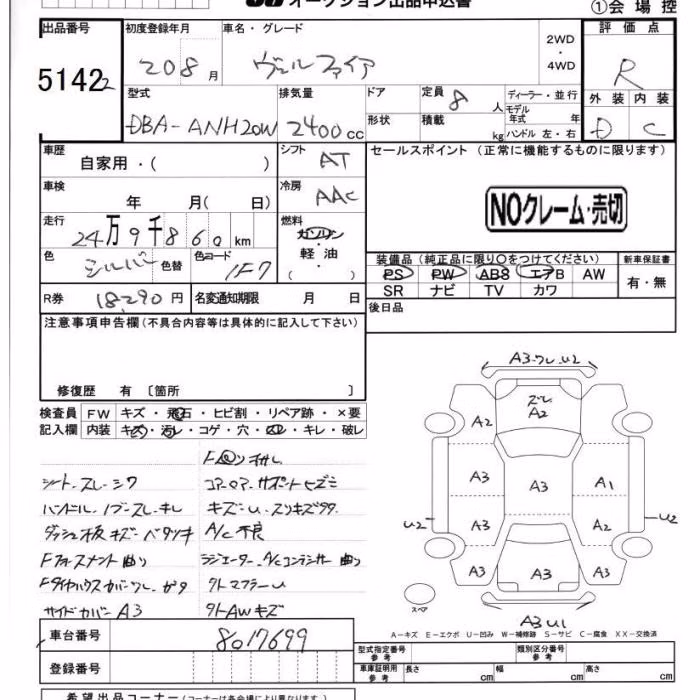 オークション出品申込書
①会場控
出品番号
51422
初度登録年月
208月
車名・グレード
ヴェルファイア
2WD
・
4WD
評価点
R
外装 内装
D C
型式
DBA-ANH20W
排気量
2400cc
ドア
形状
定員 8人
積載 kg
ディーラー・並行
モデル年式 年
ハンドル 左・右
車歴
自家用・( )
シフト
AT
セールスポイント (正常に機能するものに限ります)
NOクレーム・売切
車検
年 月( 日)
冷房
AAC
走行
24万9千860km
燃料
ガソリン
・
軽油
・
( )
色
シルバー
色替
色コード
1F7
装備品 (純正品に限り○をつけてください)
PS PW ABS エアB AW
SR ナビ TV カワ
新車保証書
有・無
R券
18,290円
名変通知期限 月 日
後日品
注意事項申告欄 (不具合内容等は具体的に記入して下さい)
修復歴 有 〔箇所 〕
検査員記入欄
FW キズ・飛石・ヒビ割・リペア跡・×要
内装 キズ・汚レ・コゲ・穴・スレ・キレ・破レ
シート.スレ-シワ
ハンドル.ノブ-スレ-キレ
ダッシュ板キズ-ベタツキ
Fフォースメント曲り
サイドカバーA3
コア-ロア.サポートヒズミ
キズ-U-スリキズタタ
A/C不良
ラジエーター.A/Cコンデンサー曲り
リトマフラーU
リトAWキズ
A3.ワレ.U2
ズレ
A2
A2
A3
A3
A1
A3
A2
U2
U2
A3
A3
A3
スペア
A3U1
A-キズ E-エクボ U-凹み W-補修跡 S-サビ C-腐食 XX-交換済
車台番号
8017699
登録番号
型式指定番号
参考
類別区分番号
参考
車庫証明用
参考
長さ cm
幅 cm
高さ cm
希望出品コーナー (コーナーは各会場により異なります)